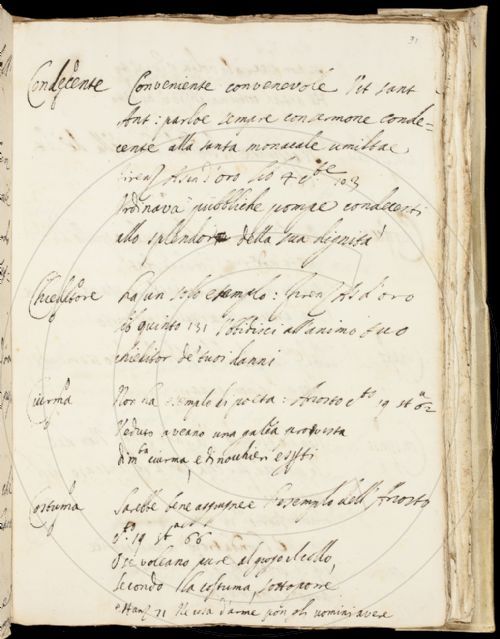 31
Condecente Conveniente convenevole Vit sant
Ant: parloe sempre con sermone conde=
cente alla santa monacale umiltae.
Firenz Asin d'oro lib 4 c 103
Ordinava pubbliche pompe condecenti
allo splendore della sua dignità
Chieditore ha un solo esempio: Firenz As d'oro
lib quinto 131 all'animo tuo
chieditor de tuoi danni
Ciurma Non ha esempio di poeta: Ariosto cto 19 sta 62
Veduto aveano una galea
ciurma, e di nocchieri
Costuma Sarebbe bene aggiugnere l'esempio dell'Ariosto
cto. 19 sta 66
O se voleano pure al giogo il collo,
secondo la costuma, sottoporre
Stanz 71 Ne usa d'arme gli uomini aver